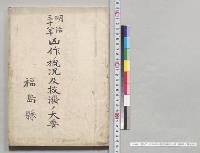 明治
三十八年
凶作ノ概況及救濟ノ大要
福島縣